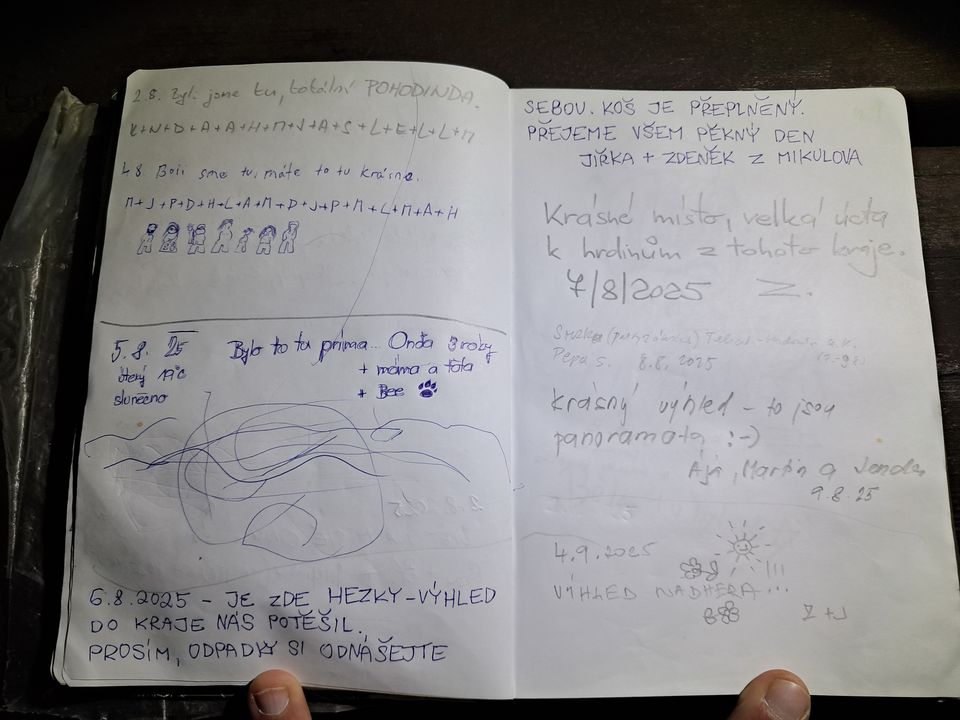 2 8. Byli jsme tu, totální POHODINDA.
K+N+D+A+A+H+M+J+A+S+L+E+L+L+M
4 8 Boii sme tu, máte to tu krásne.
M+J+P+D+H+L+A+M+D+J+P+M+L+M+A+H
5. 8. 25 Bylo to tu príma... Onďa 3 roky
úterý 19°C + máma a táta
slunečno + Bee
6.8.2025 - JE ZDE HEZKY - VÝHLED
DO KRAJE NÁS POTĚŠIL.
PROSÍM, ODPADKY SI ODNÁŠEJTE
SEBOU. KOŠ JE PŘEPLNĚNÝ.
PŘEJEME VŠEM PĚKNÝ DEN
JIŘKA + ZDENĚK Z MIKULOVA
Krásné místo, velká úcta
k hrdinům z tohoto kraje.
7/8/2025 Z.
Pepa S. 8.8. 2025
Krásný výhled - to jsou
panoramata :-)
Ája, Martin a Jenda
9.8.25
4.9.2025
!!!
VÝHLED NÁDHERA...
Z+J